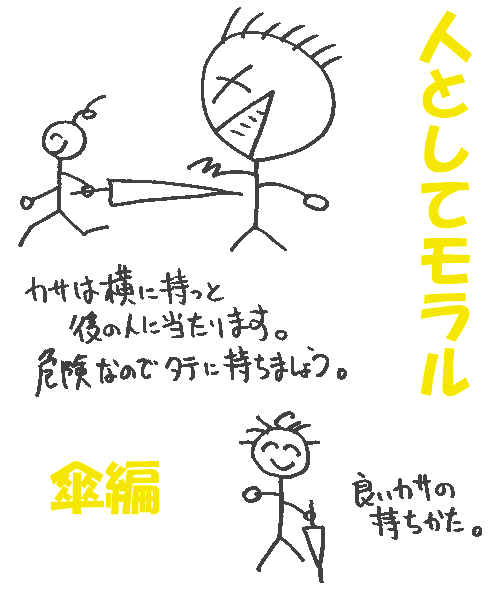 人としてモラル
カサは横に持っと
後の人に当たります。
危険なのでタテに持ちましょう。
傘編
良いカサの
持ちかた。